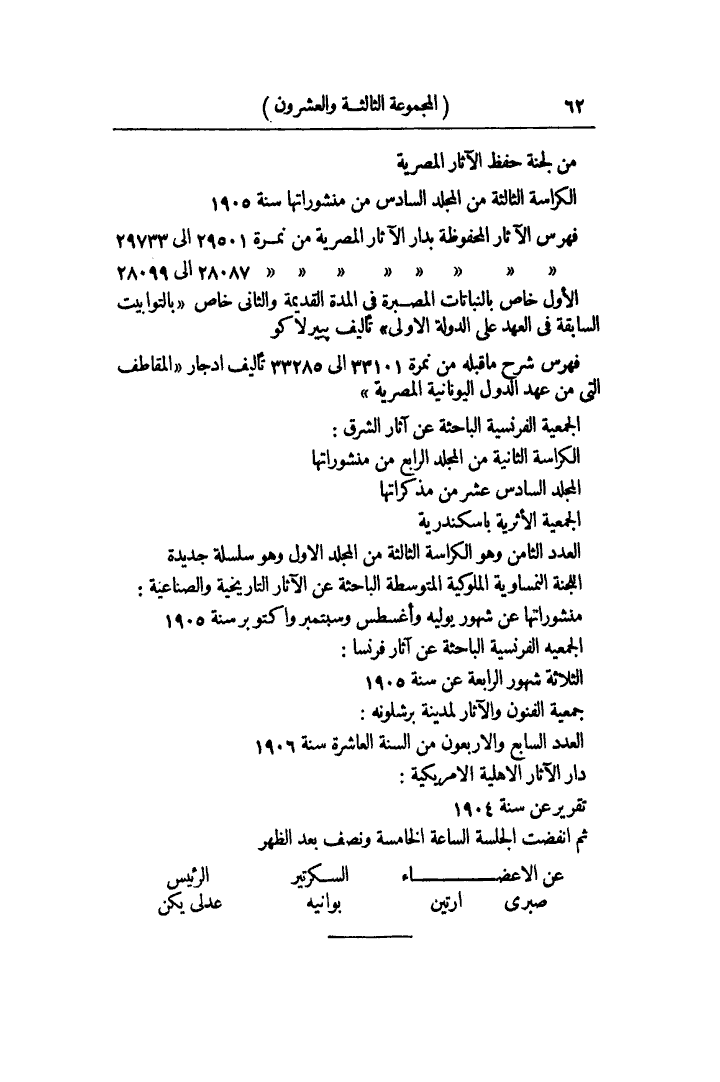 ٦٢ ( المجموعة الثالثة والعشرون )
من لجنة حفظ الآثار المصرية
الكراسة الثالثة من المجلد السادس من منشوراتها سنة ١٩٠٥
فهرس الآثار المحفوظة بدار الآثار المصرية من نمرة ٢٩٥٠١ الى ٢٩٧٣٣
« « « « « « « « ٢٨٠٨٧ الى ٢٨٠٩٩
الأول خاص بالنباتات المصبرة فى المدة القديمة والثانى خاص «بالتوابيت
السابقة فى العهد على الدولة الاولى» تأليف پييرلاكو
فهرس شرح ماقبله من نمرة ٣٣١٠١ الى ٣٣٢٨٥ تأليف ادجار «المقاطف
التى من عهد الدول اليونانية المصرية »
الجمعية الفرنسية الباحثة عن آثار الشرق :
الكراسة الثانية من المجلد الرابع من منشوراتها
المجلد السادس عشر من مذكراتها
الجمعية الأثرية باسكندرية
العدد الثامن وهو الكراسة الثالثة من المجلد الاول وهو سلسلة جديدة
اللجنة النمساوية الملوكية المتوسطة الباحثة عن الآثار التاريخية والصناعية :
منشوراتها عن شهور يوليه وأغسطس وسبتمبر واكتوبر سنة ١٩٠٥
الجمعيه الفرنسية الباحثة عن آثار فرنسا :
الثلاثة شهور الرابعة عن سنة ١٩٠٥
جمعية الفنون والآثار لمدينة برشلونه :
العدد السابع والاربعون من السنة العاشرة سنة ١٩٠٦
دار الآثار الاهلية الامريكية :
تقرير عن سنة ١٩٠٤
ثم انفضت الجلسة الساعة الخامسة ونصف بعد الظهر
عن الاعضـــــــاء السكرتير الرئيس
صبرى ارتين بوانيه عدلى يكن